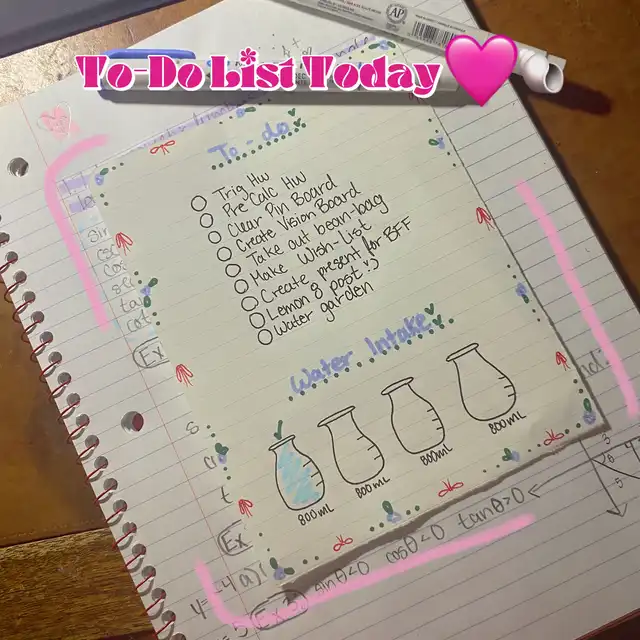 To-Do List Today
AP
To-do
Trig Hw
Pre Calc Hw
Clear Pin Board
Create Vision Board
Take out bean-bag
Make Wish-List
Create present for BFF
Lemon 8 post :)
Water garden
Water Intake
800mL
800mL
800mL
800mL
Ex
Ex
Ex 3
sinθ<0 cosθ<0 tanθ>0